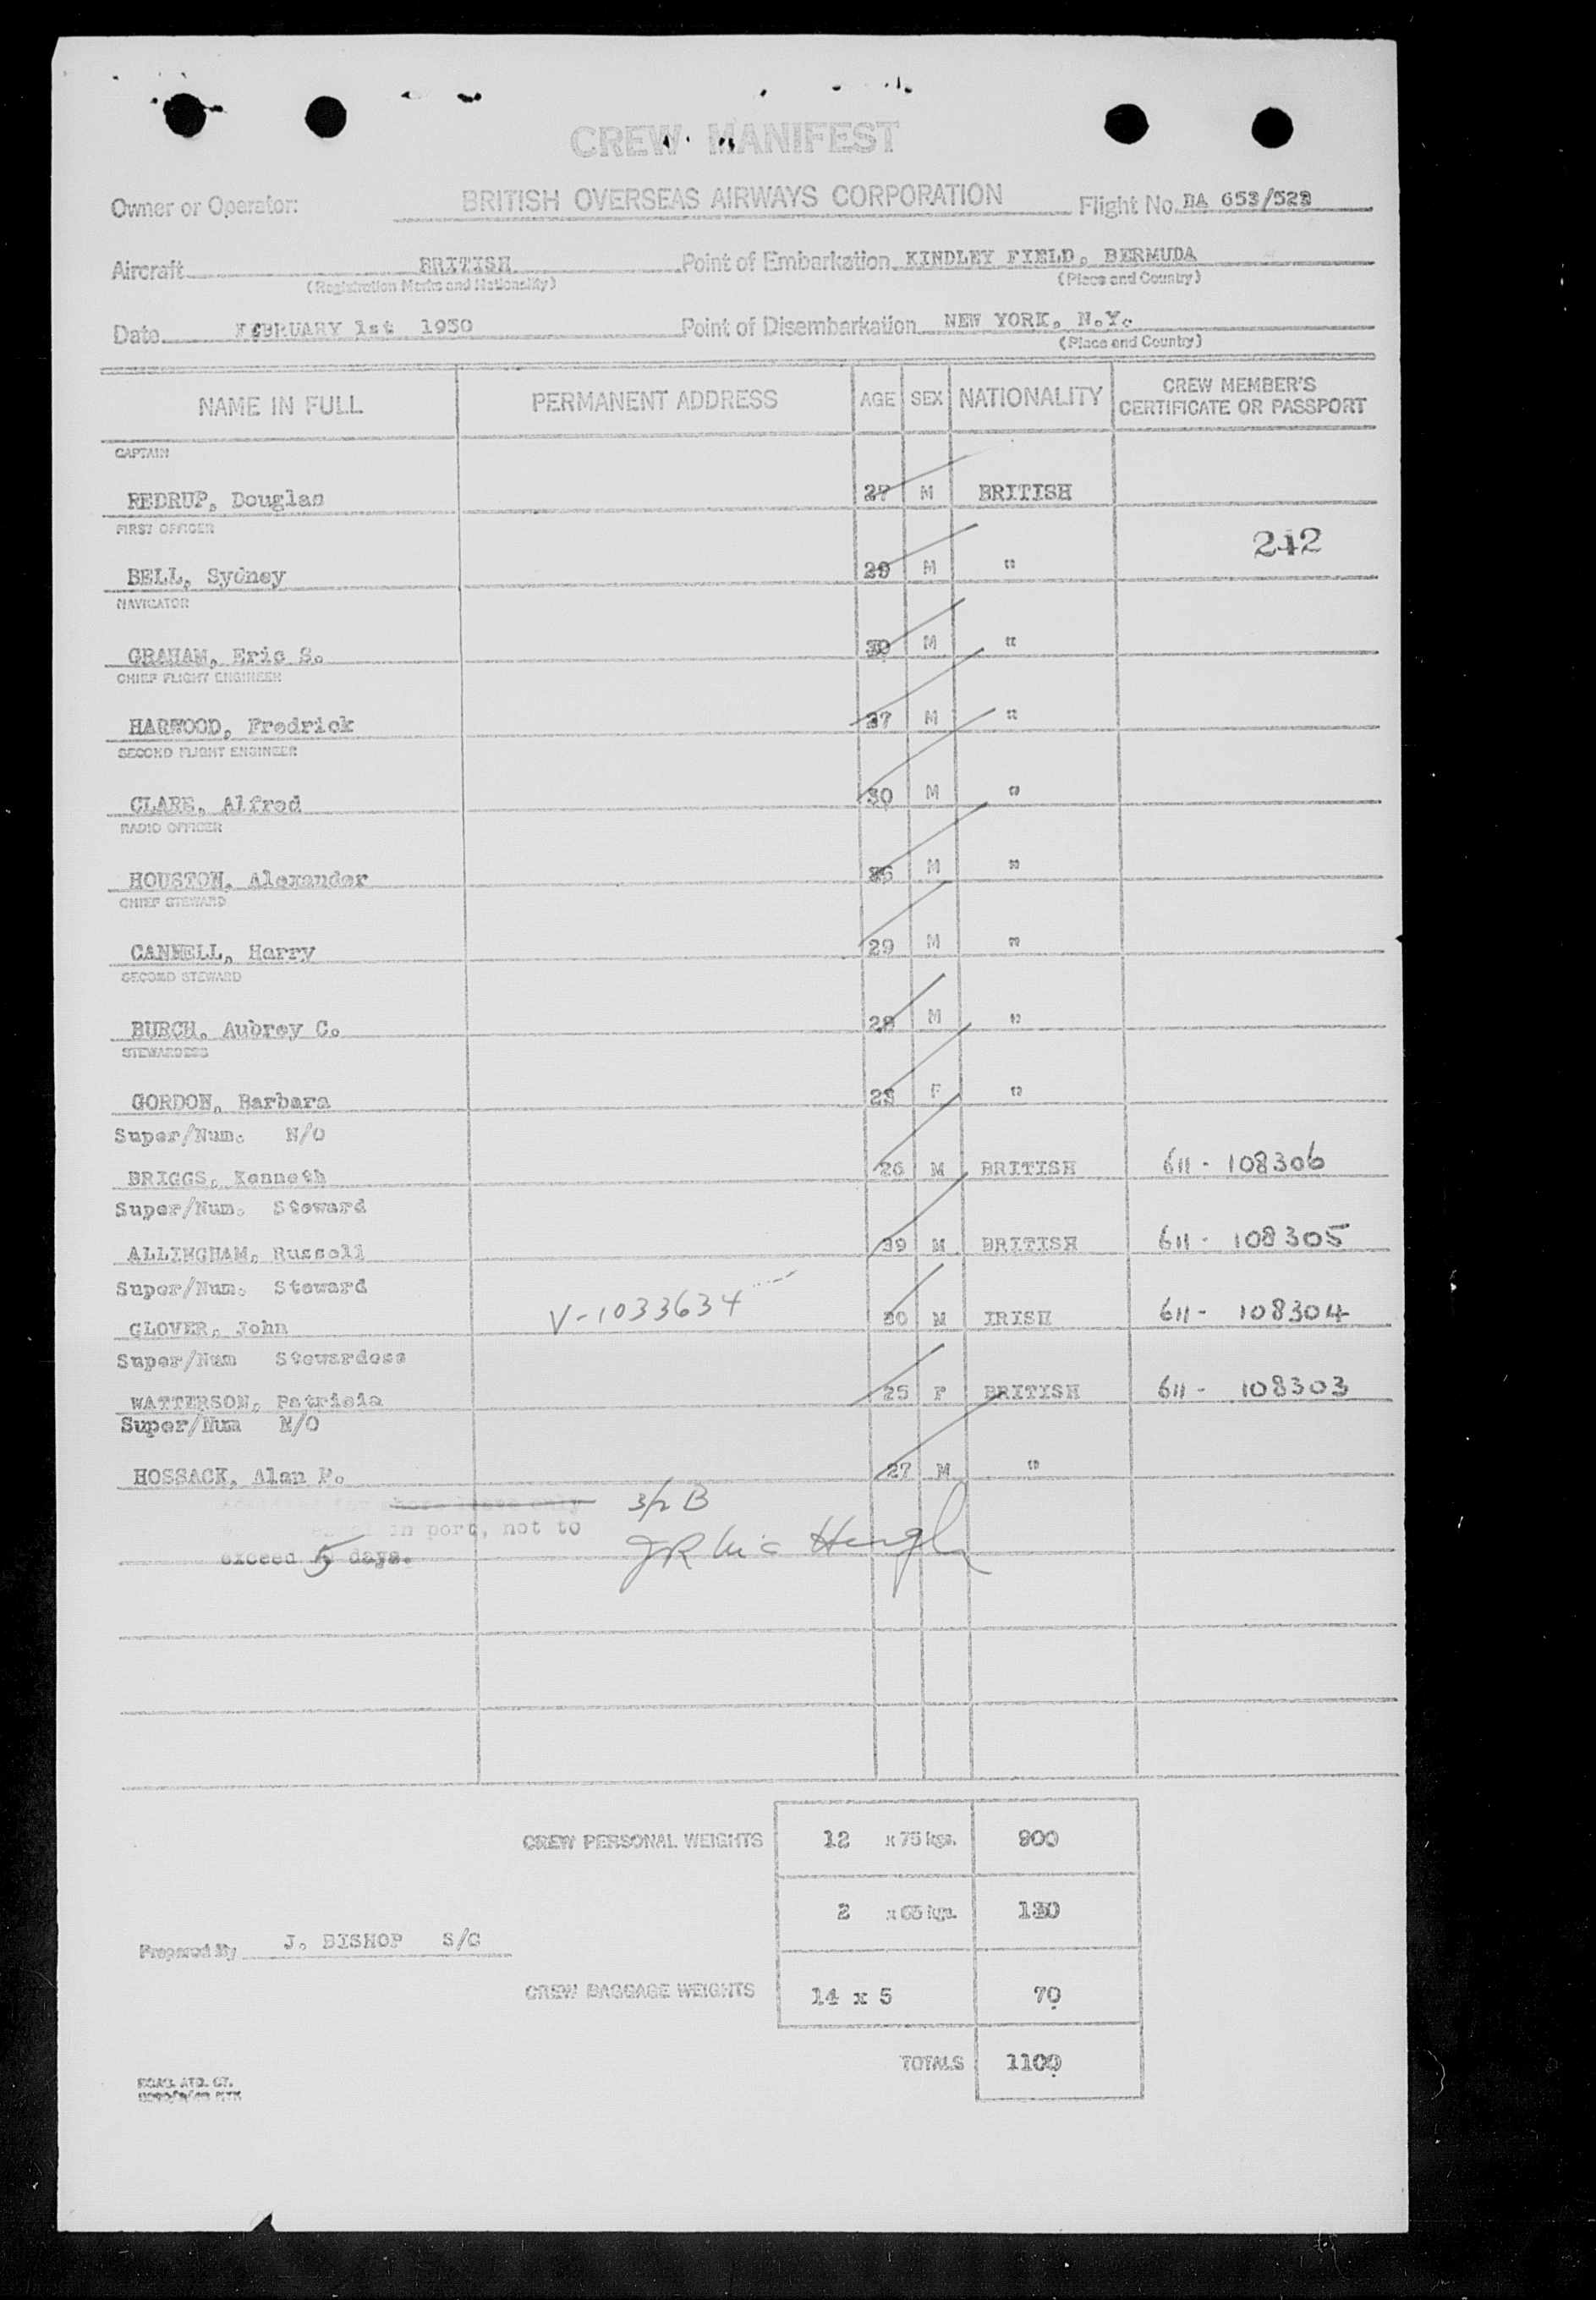 CREW MANIFEST
Owner or Operator: BRITISH OVERSEAS AIRWAYS CORPORATION Flight No. BA 653/523
Aircraft BRITISH Point of Embarkation KINDLEY FIELD, BERMUDA
(Registration Marks and Nationality) (Place and Country)
Date FEBRUARY 1st 1950 Point of Disembarkation NEW YORK, N.Y.
(Place and Country)
NAME IN FULL PERMANENT ADDRESS AGE SEX NATIONALITY CREW MEMBER'S CERTIFICATE OR PASSPORT
CAPTAIN
REDRUP, Douglas 27 M BRITISH
FIRST OFFICER 242
BELL, Sydney 29 M "
NAVIGATOR
GRAHAM, Eric S. 30 M "
CHIEF FLIGHT ENGINEER
HARWOOD, Fredrick 37 M "
SECOND FLIGHT ENGINEER
CLARE, Alfred 30 M "
RADIO OFFICER
HOUSTON, Alexander 26 M "
CHIEF STEWARD
CANNELL, Harry 29 M "
SECOND STEWARD
BURCH, Aubrey C. 28 M "
STEWARDESS
GORDON, Barbara F "
Super/Num. N/O
BRIGGS, Kenneth 26 M BRITISH 611 - 108306
Super/Num. Steward
ALLINGHAM, Russell 39 M BRITISH 611 - 108305
Super/Num. Steward
GLOVER, John V-1033634 30 M IRISH 611 - 108304
Super/Num Stewardess
WATTERSON, Patricia 25 F BRITISH 611 - 108303
Super/Num N/O
HOSSACK, Alan P. 27 M "
3/2 B
in port, not to
exceed 5 days.
CREW PERSONAL WEIGHTS 12 x 75 kgs. 900
2 x 65 kgs. 130
Prepared By J. BISHOP S/C
CREW BAGGAGE WEIGHTS 14 x 5 70
TOTALS 1100